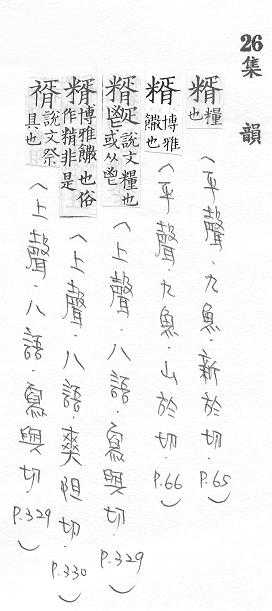 26 集韻
糈 糧也 (平聲.九魚.新於切. P.65)
糈 博雅饊也 (平聲.九魚.山於切. P.66)
糈 說文糧也 或从 (上聲.八語.寫與切. P.329)
糈 博雅饊也俗作精非是 (上聲.八語.爽阻切. P.330)
說文祭具也 (上聲.八語.寫與切. P.329)